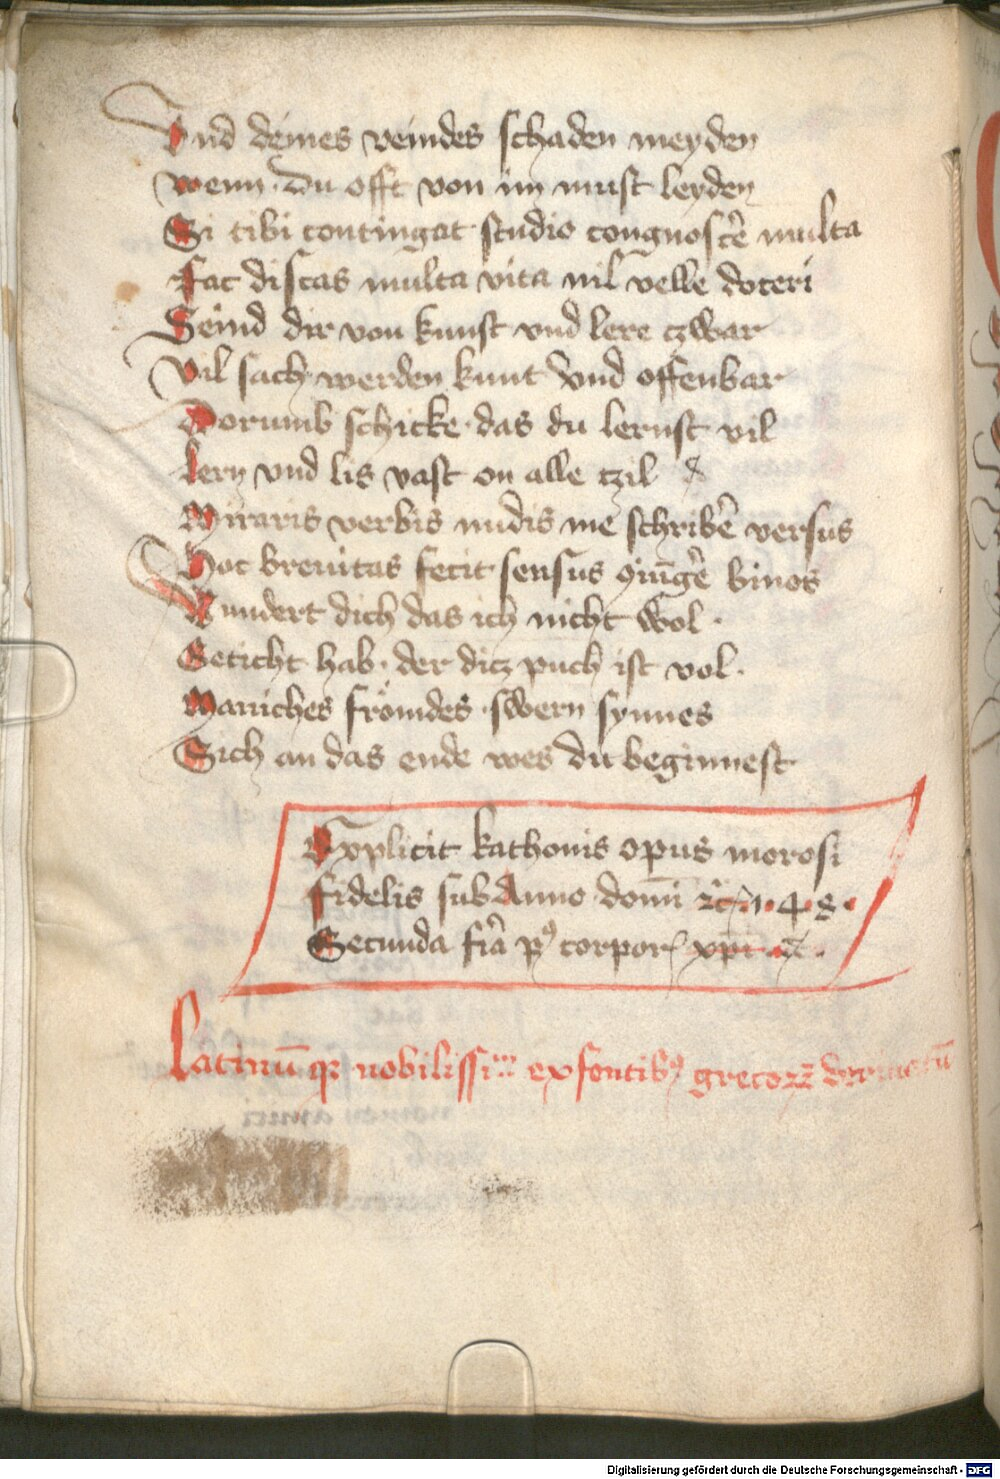 Vnd deines veindes schaden meyden
wenn du offt von im must leyden
Si tibi contingat studio congnoscē multa
Fac discas multa vita nil velle doceri
Seind dir von kunst vnd lere czwar
Vil sach werden kunt vnd offenbar
Dorumb schicke das du lernst vil
lern vnd lis vast on alle czil
Miraris verbis nudis me schribē versus
Hoc breuitas fecit sensus ꝯiūgē binos
Wundert dich das ich nicht wol
Geticht hab der dicz puch ist vol
Manches frömdes swern synnes
Sich an das ende wes du beginnest
Explicit kathonis opus morosi
fidelis sub Anno domī
Secunda fīa pꝰ corporꝭ xpī
Latinū qꝫ nobilissi ex fontibꝰ
Digitalisierung gefördert durch die Deutsche Forschungsgemeinschaft - DFG